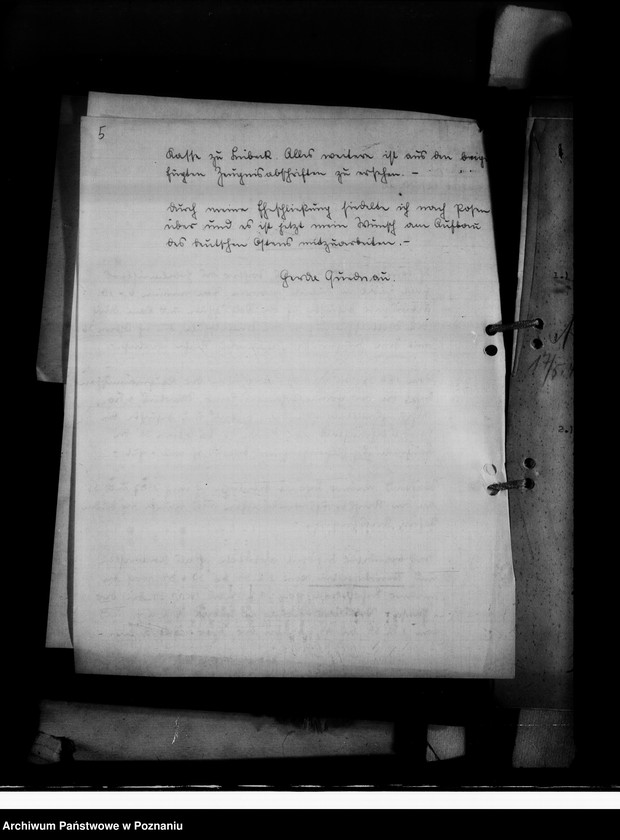 5
Kasse zu Lübeck. Alles weitere ist aus den beige-
fügten Zeugnisabschriften zu ersehen. –
Durch meine Eheschließung siedelte ich nach Posen
über und es ist jetzt mein Wunsch am Aufbau
des deutschen Ostens mitzuarbeiten. –
Gerda
17/5.
Archiwum Państwowe w Poznaniu